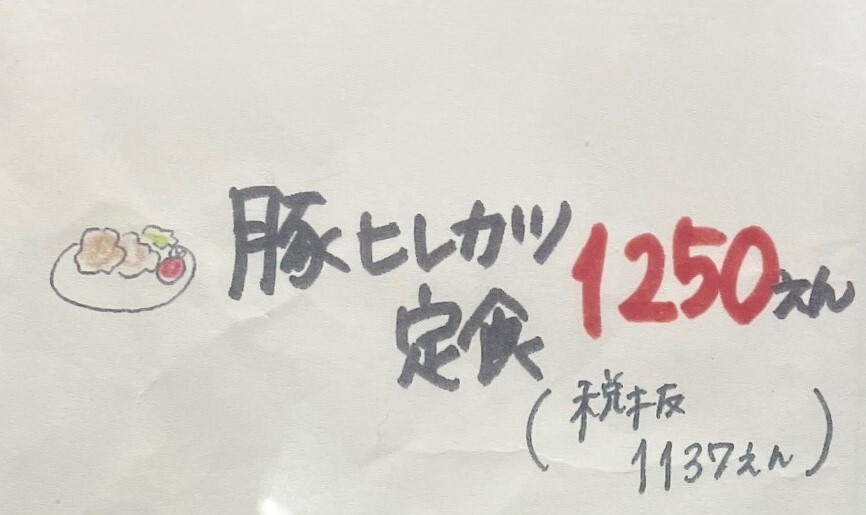 豚ヒレカツ
定食
1250えん
(税抜
1137えん)